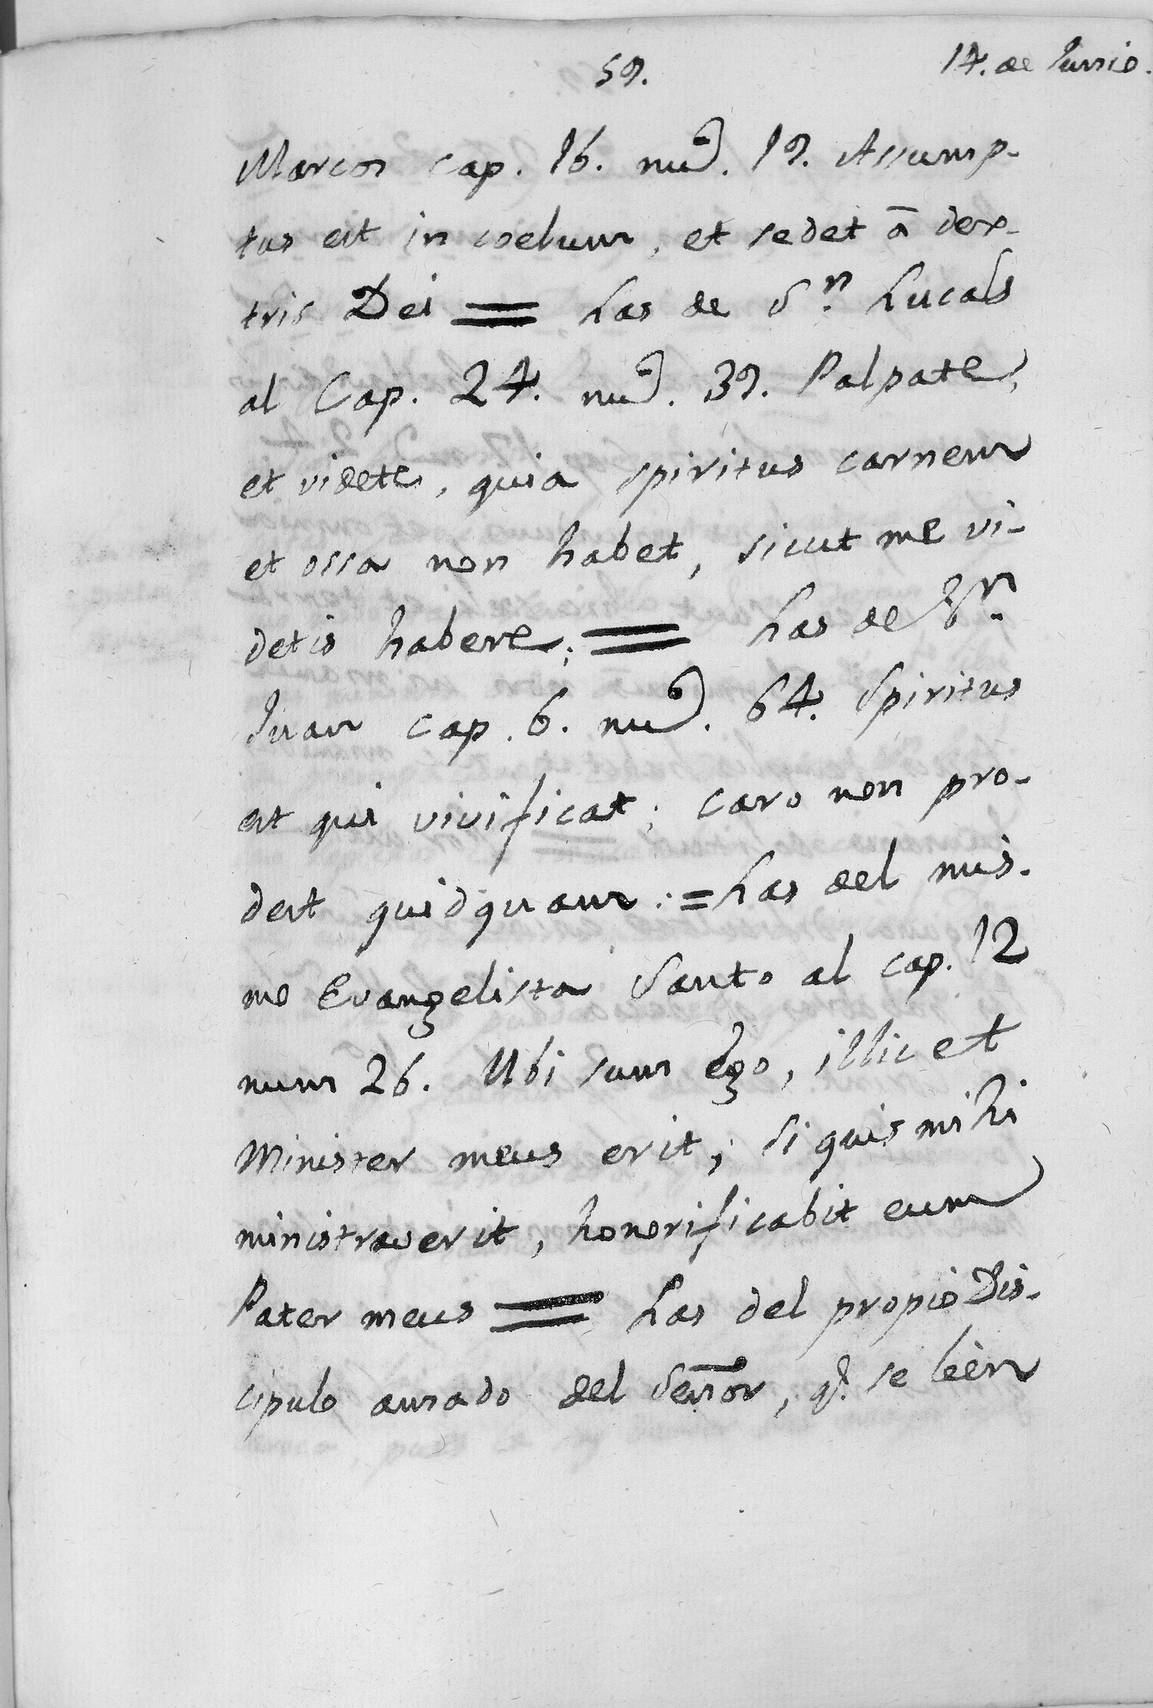 59.
14. de Junio.
Marcos cap. 16. nu͂. 19. Assump-
tus est in coelum, et sedet ā dex-
tris Dei = Las de S.n Lucas
al Cap. 24. nu͂. 39. Palpate,
et videte, quia spiritus carnem
et ossa non habet, sicut me vi-
detis habere; = Las de S.n
Juan cap. 6. nu͂. 64. Spiritus
est qui vivificat; caro non pro-
dest quidquam: = Las del mis-
mo Evangelista Santo al cap. 12
num 26. Ubi sum Ego, illic et
Minister meus erit; Si quis mihi
ministraverit, honorificabit eum
Pater meus = Las del propio Dis-
cipulo amado del Señor, q.e se leèn